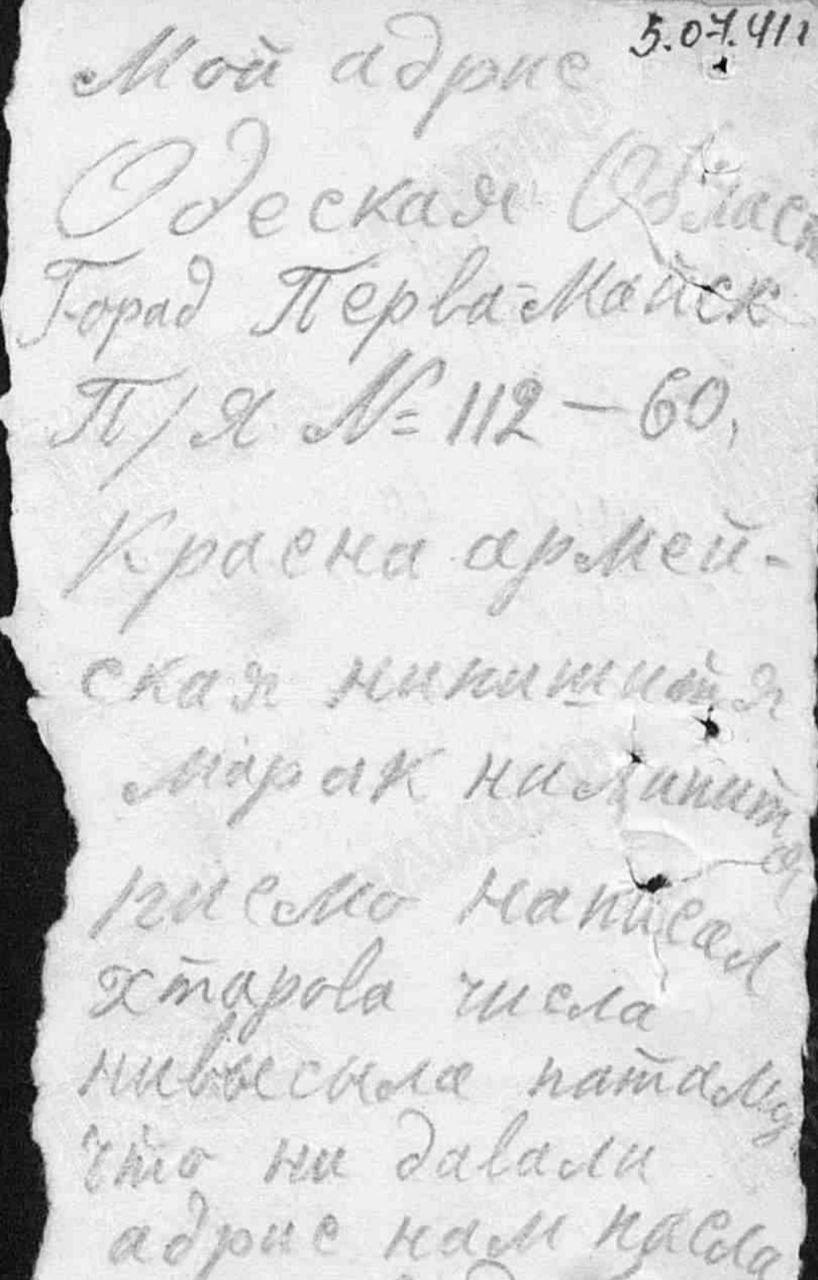 5.07.41г
Мой адрис
Одеская Област
Горад Перва-Майск
П/Я № 112 – 60,
Красна армей-
ская нипишитя
марак нилипитя
писмо написал
хтарова числа
нивысыла патаму
что ни давали
адрис нам